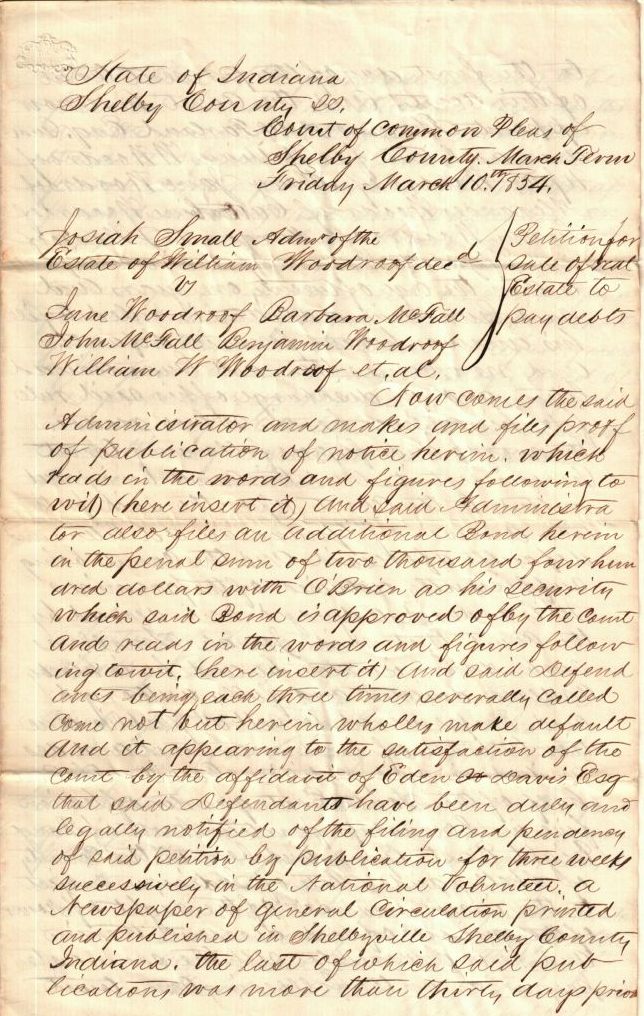 State of Indiana
Shelby County SS.
Court of Common Pleas of
Shelby County. March Term
Friday March 10.th 1854.
Josiah Small Admr of the
Estate of William Woodroof decd
vs
Jane Woodroof Barbara McFall
John McFall Benjamin Woodroof
William W Woodroof et. al.
Petition for
Sale of real
Estate to
pay debts
Now comes the said
Administrator and makes and files proof
of publication of notice herein. which
reads in the words and figures following to
wit) (here insert it) And said Administra
tor also files an additional Bond herein
in the penal sum of two thousand four hun
dred dollars with O'Brien as his security
which said Bond is approved of by the Court
And reads in the words and figures follow
ing towit. (here insert it) And said Defend
ants being each three times severally called
Come not but herein wholly make default
And it appearing to the satisfaction of the
Court by the affidavit of Eden H Davis Esqr
that said Defendants have been duly and
legally notified of the filing and pendency
of said petition by publication for three weeks
successively in the National Volunteer. a
Newspaper of general Circulation printed
and published in Shelbyville Shelby County
Indiana. the last of which said pub
lications was more than thirty days prior